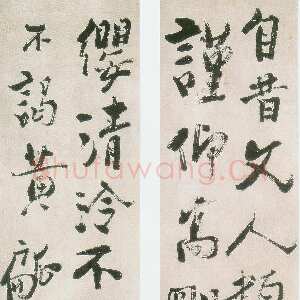 自昔文人
謹仰高
纓清泠不
不謁黃
shufawang.cn